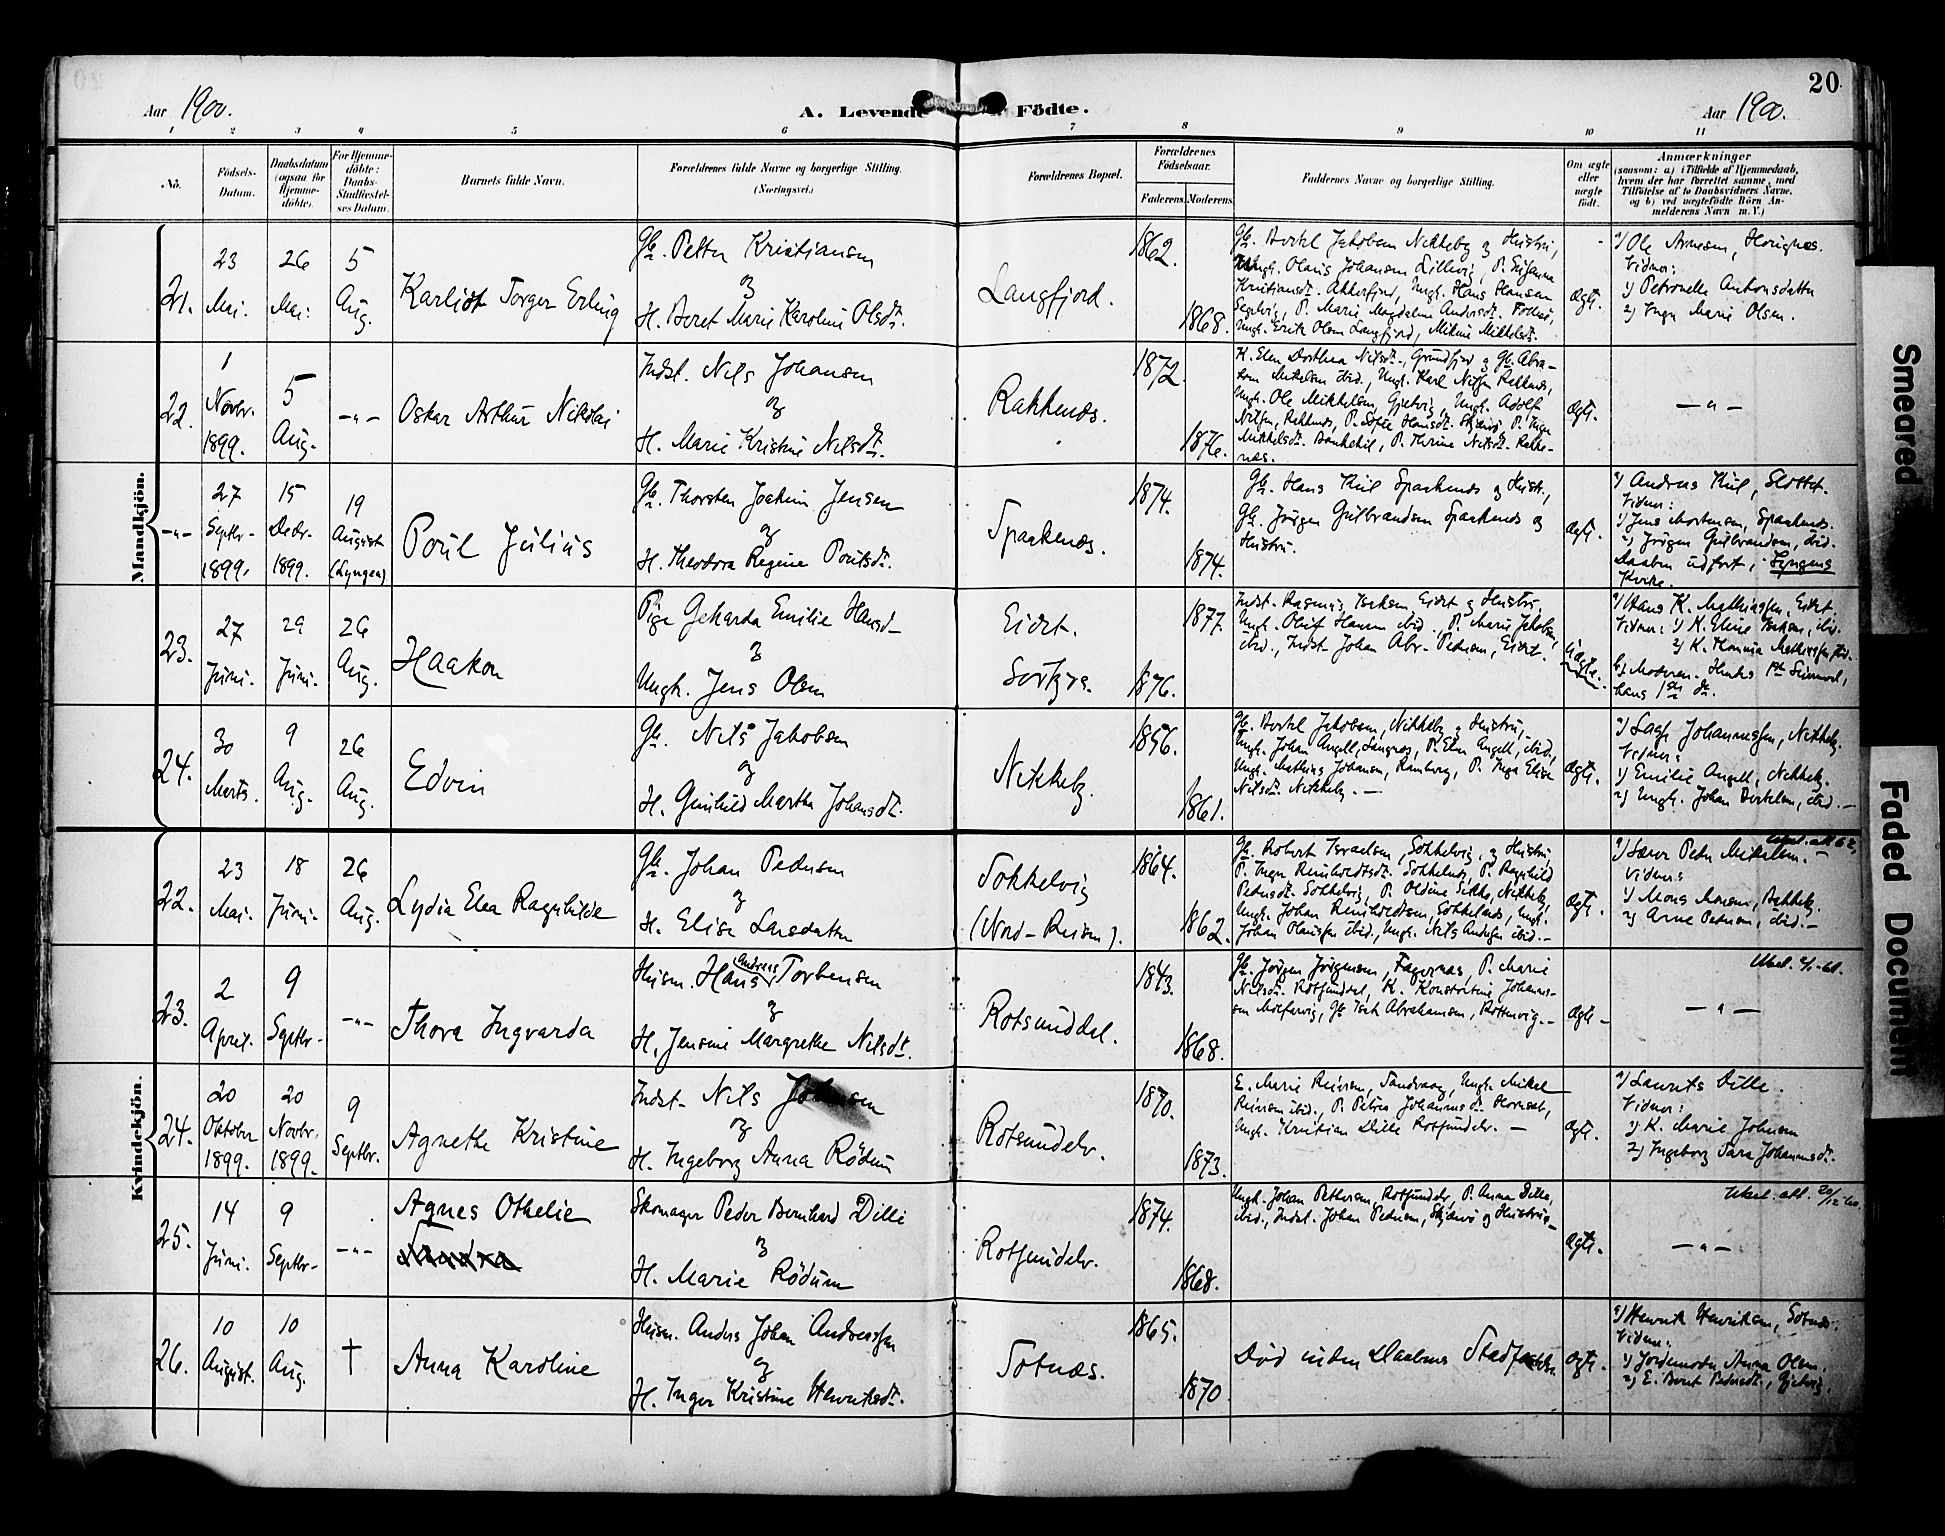 20
Aar 1900.
A. Levende Födte.
Aar 1900.
1 2 3 4 5 6 7 8 9 10 11
No.
Födsels-
Datum.
Daabsdatum
(ogsaa for
Hjemme-
döbte).
For Hjemme-
döbte:
Daabs-
Stadfæstel-
ses Datum.
Barnets fulde Navn.
Forældrenes fulde Navne og borgerlige Stilling.
(Næringsvei.)
Forældrenes Bopæl.
Forældrenes
Födselsaar.
Faderens. Moderens.
Faddernes Navne og borgerlige Stilling.
Om ægte
eller
uægte
födt.
Anmærkninger
(saasom: a) i Tilfælde af Hjemmedaab,
hvem der har forrettet samme, med
Tilföielse af to Daabsvidners Navne,
og b) ved uægtefödte Börn An-
melderens Navn m. V.)
Mandkjön.
21.
23
Mai.
26
Mai.
5
Aug.
Karl Torger Erling
Gb. Petter Kristiansen
og
H. Beret Marie Karoline Olsdt.
Langfjord.
1862.
1868.
Gb. Bertel Jakobsen Nikkeby og Hustru,
Ungk. Olaus Johansen Lillevig, P. Susanna
Kristiansdt. Akkerfjord, Ungk. Hans Hansen
Segelvig, P. Marie Magdalene Andersdt.
Ungk. Erik Olsen Langfjord,
Ægt.
a) Ole Arnesen,
Vidner:
1) Petronelle Antonsdatter
2) Inga Marie Olsen.
22.
1
Novbr.
1899.
5
Aug.
-"-
Oskar Arthur Nikolai
Indst. Nils Johansen
og
H. Marie Kristine Nilsdt.
Rakkenæs.
1872.
1876.
K. Elen Dorthea Nilsdt., Grundfjord og Gb. Abra-
ham Mikelsen ibid., Ungk. Karl Nilsen Rakkenæs,
Ungk. Ole Mikkelsen, Gjetvig, Ungk. Adolf
Nilsen, Rakkenæs, P. Sofie Hansdt. Skjærvö, P. Inga
Mikkelsdt. P. Thrine Nilsdt. Rakke-
næs.
Ægt.
-"-
-"-
27
Septbr.
1899.
15
Decbr.
1899.
19
August
(Lyngen)
Poul Julius
Gb. Thorsten Joakim Jensen
og
H. Theodora Regine Poulsdt.
Spaakenæs.
1874.
1874.
Gb. Hans Kiil Spaakenæs og Hustr.,
Gb. Jörgen Gulbrandsen Spaakenæs og
Hustru.
Ægt.
a) Andreas Kiil, Slottet.
Vidner:
1) Jens Mortensen, Spaakenæs.
2) Jörgen Gulbrandsen, ibid.
Daaben udfört i Lyngens
Kirke.
23.
27
Juni.
29
Juni.
26
Aug.
Haakon
Pige Geharda Emilie Hansd-
og
Ungk. Jens Olsen
Eidet.
Sörkjos.
1877.
1876.
Indst. Rasmus Isaksen Eidet og Hustru,
Ungk. Oluf Hansen ibid., P. Marie Jakobsen,
ibid., Indst. Johan Abr. Pedersen, Eidet.
Uægte.
a) Hans K. Mathiassen, Eidet.
Vidner: 1) K. Eline Isaksen, ibid.
b) Moderen.
24.
30
Marts.
9
Aug.
26
Aug.
Edvin
Gb. Nils Jakobsen
og
H. Gunhild Martha Johansdt.
Nikkeby.
1856.
1861.
Gb. Bertel Jakobsen, Nikkeby og Hustru,
Ungk. Johan Angell, P. Elen Angell, ibid,
Ungk. Mathias Johansen, P. Inga Elise
Nilsdt. Nikkeby.
Ægt.
Johannessen, Nikkeby.
Vidner:
1) Emilie Angell, Nikkeby.
2) Ungk. Johan Bertelsen, ibid.
Kvindekjön.
22.
23
Mai.
18
Juni.
26
Aug.
Lydia Elea Ragnhilde
Gb. Johan Pedersen
og
H. Elisa Larsdatter
Sokkelvig
(Nord-Reisen).
1864.
1862.
Gb. Robert Israelsen, Sokkelvig, og Hustru,
P. Inga Reinholdtsdt. Sokkelnæs, P. Ragnhild
Pedersdt. Sokkelvig, P. Oldine Nikkeby,
Ungk. Johan Reinholdtsen, Sokkelnæs, Ungk.
Johan Olaussen ibid., Ungk. Nils Andersen ibid.
Ægt.
a) Lærer Peder Mikkelsen.
Vidner:
1) Mons Monsen,
2) Arne Pedersen, ibid.
23.
2
April.
9
Septbr.
-"-
Thora Ingvarda
Husm. Hans Andreas Torbensen
og
H. Jensine Margrethe Nilsdt.
Rotsunddal.
1843.
1868.
Gb. Jörgen Jörgensen, Fagernæs, P. Marie
Nilsdt. Rotsunddal, K. Konstantine Johannes-
sen Gb. Isak Abrahamsen,
Ægt.
-"-
24.
20
Oktober
1899.
20
Novbr.
1899.
9
Septbr.
Agnethe Kristine
Indst. Nils Johansen
og
H. Ingeborg Anna Rödum
Rotsundelv.
1870.
1873.
E. Marie Reiersen, Sandvaag, Ungk. Mikal
Reiersen ibid., P. Petrea Johannesdt. Hornset,
Ungk. Kristian Dille Rotsundelv.
Ægt.
a) Laurits Dille.
Vidner:
1) K. Marie Johansen
2) Ingeborg Sara Johannesdt.
25.
14
Juni.
9
Septbr.
-"-
Agnes Othelie
Skomager Peder Bernhard Dille
og
H. Marie Rödum
Rotsundelv.
1874.
1868.
Ungk. Johan Pettersen, Rotsundelv, P. Anna Dille,
ibid., Indst. Johan Pedersen, Skjærvö og Hustru.
Ægt.
Utst. att. 20/12-60.
-"-
26.
10
August.
10
Aug.
†
Anna Karoline
Husm. Anders Johan Andreassen
og
H. Inger Kristine Henriksdt.
Sotnæs.
1865.
1870
Död inden Daabens Stadfæstelse.
Ægt.
a) Henrik Henriksen, Sotnæs.
Vidner:
1) Jordemoder Anna Olsen.
2) E. Berit Pedersdt., Gjetvig.
Smeared
Faded Document